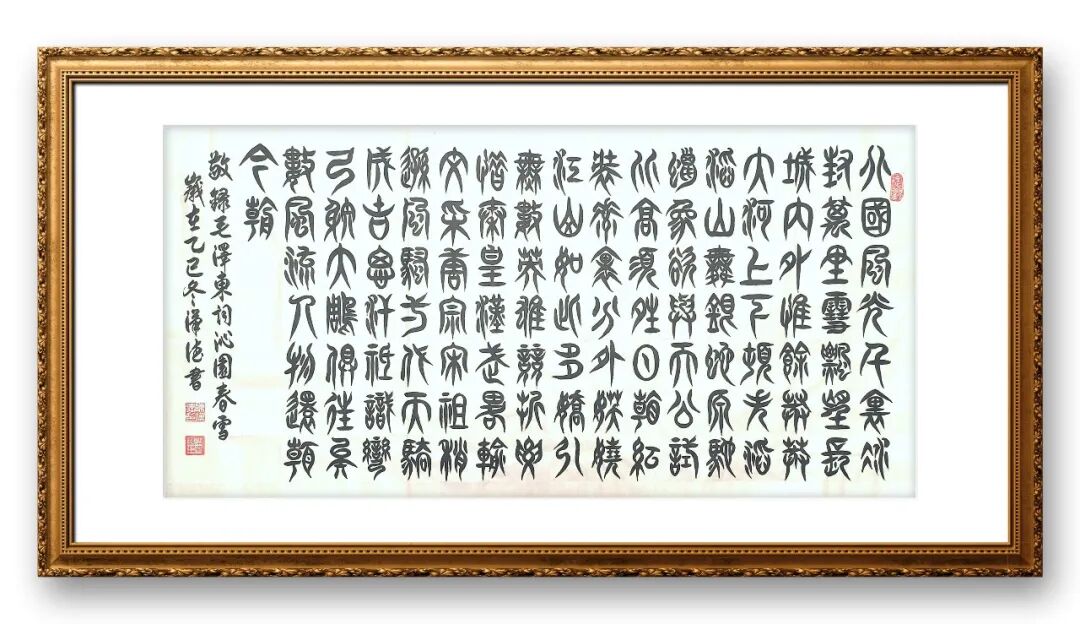 北國風光千裏冰
封萬里雪飄望長
城內外惟餘莽莽
大河上下頓失滔
滔山舞銀蛇原馳
蠟象欲與天公試
比高須晴日看紅
裝素裹分外妖嬈
江山如此多嬌引
無數英雄競折腰
惜秦皇漢武略輸
文采唐宗宋祖稍
遜風騷一代天驕
成吉思汗祇識彎
弓射大鵰俱往矣
數風流人物還看
今朝
敬錄毛澤東詞沁園春雪
歲在乙巳冬書